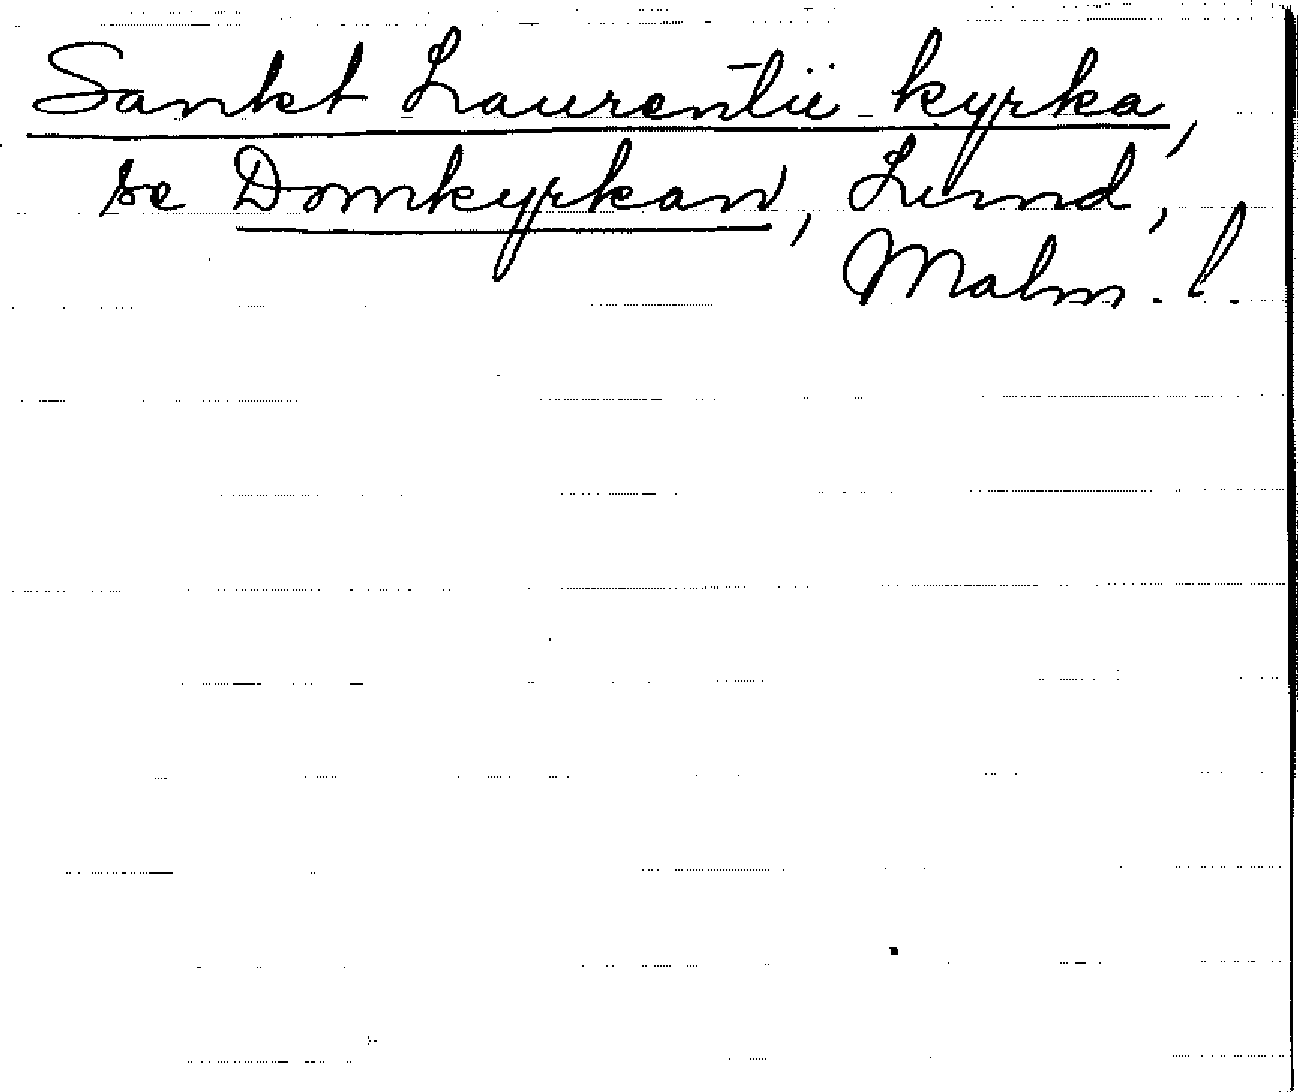 Sankt Laurentii kyrka,
se Domkyrkan, Lund,
Malm. l.